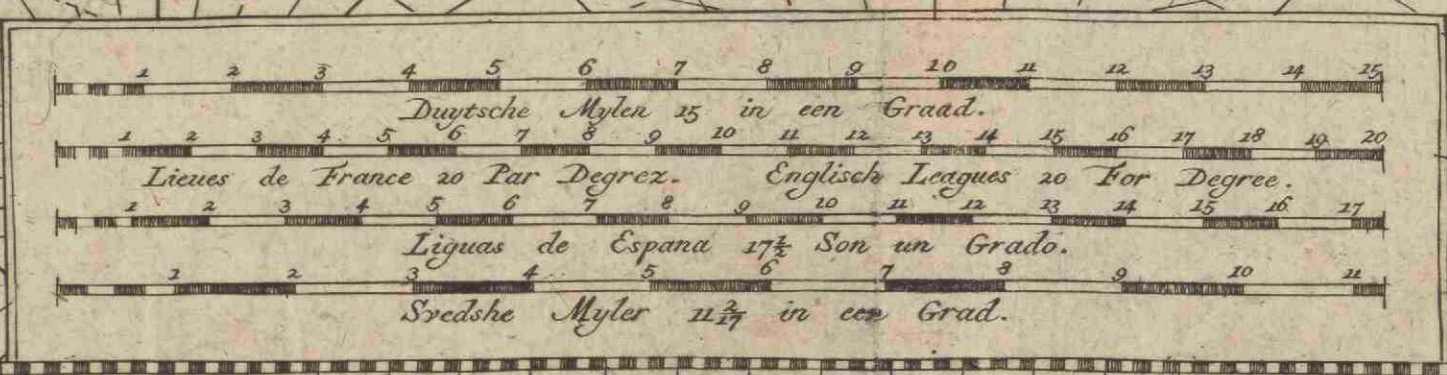 1 2 3 4 5 6 7 8 9 10 11 12 13 14 15
Duytsche Mylen 15 in een Graad.
1 2 3 4 5 6 7 8 9 10 11 12 13 14 15 16 17 18 19 20
Lieues de France 20 Par Degrez. Englisch Leagues 20 For Degree.
1 2 3 4 5 6 7 8 9 10 11 12 13 14 15 16 17
Liguas de Espana 17½ Son un Grado.
1 2 3 4 5 6 7 8 9 10 11
Svedshe Myler 11 2/17 in een Grad.